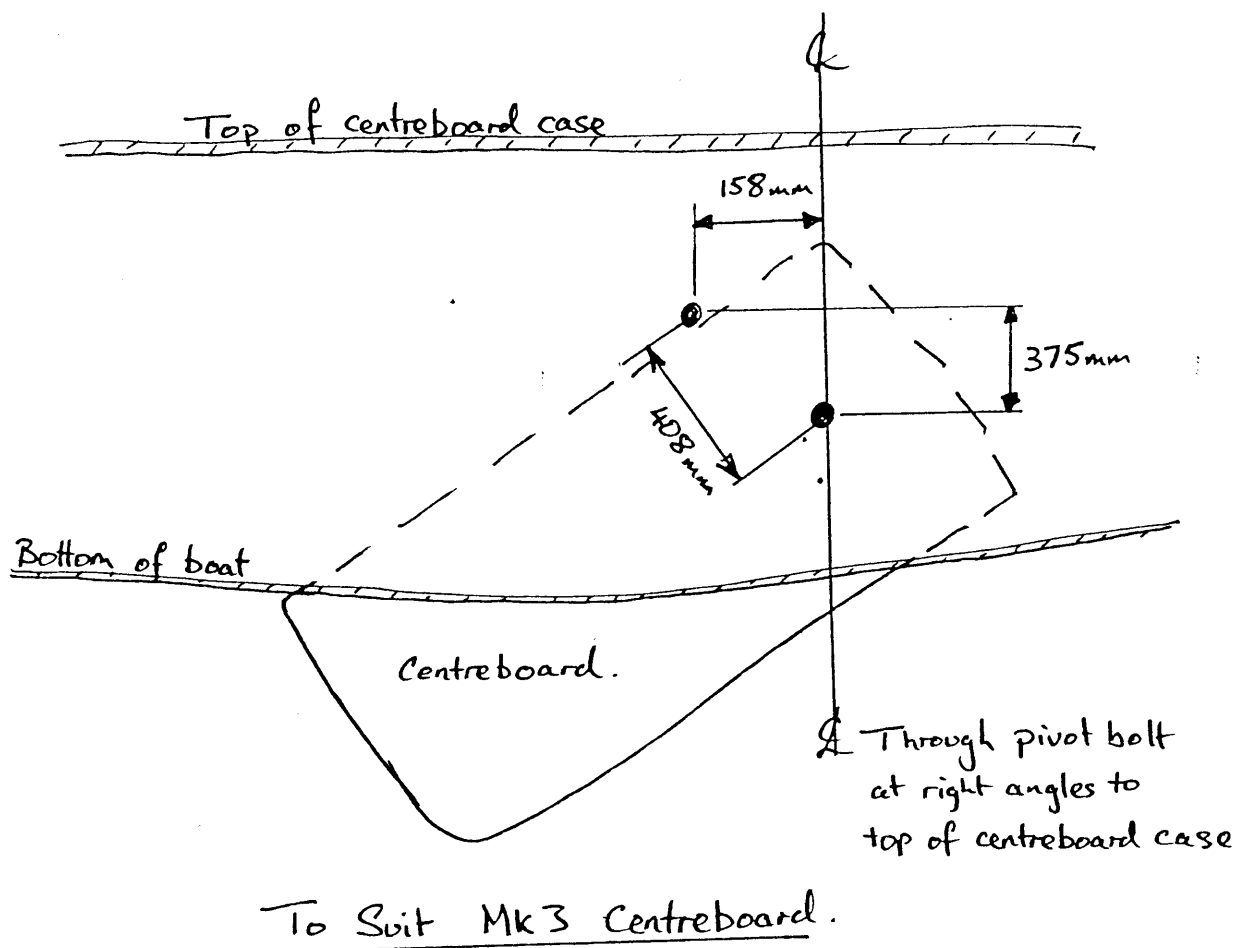 ℄
Top of centreboard case
158mm
375mm
408mm
Bottom of boat
Centreboard.
℄ Through pivot bolt
at right angles to
top of centreboard case
To Suit Mk3 Centreboard.